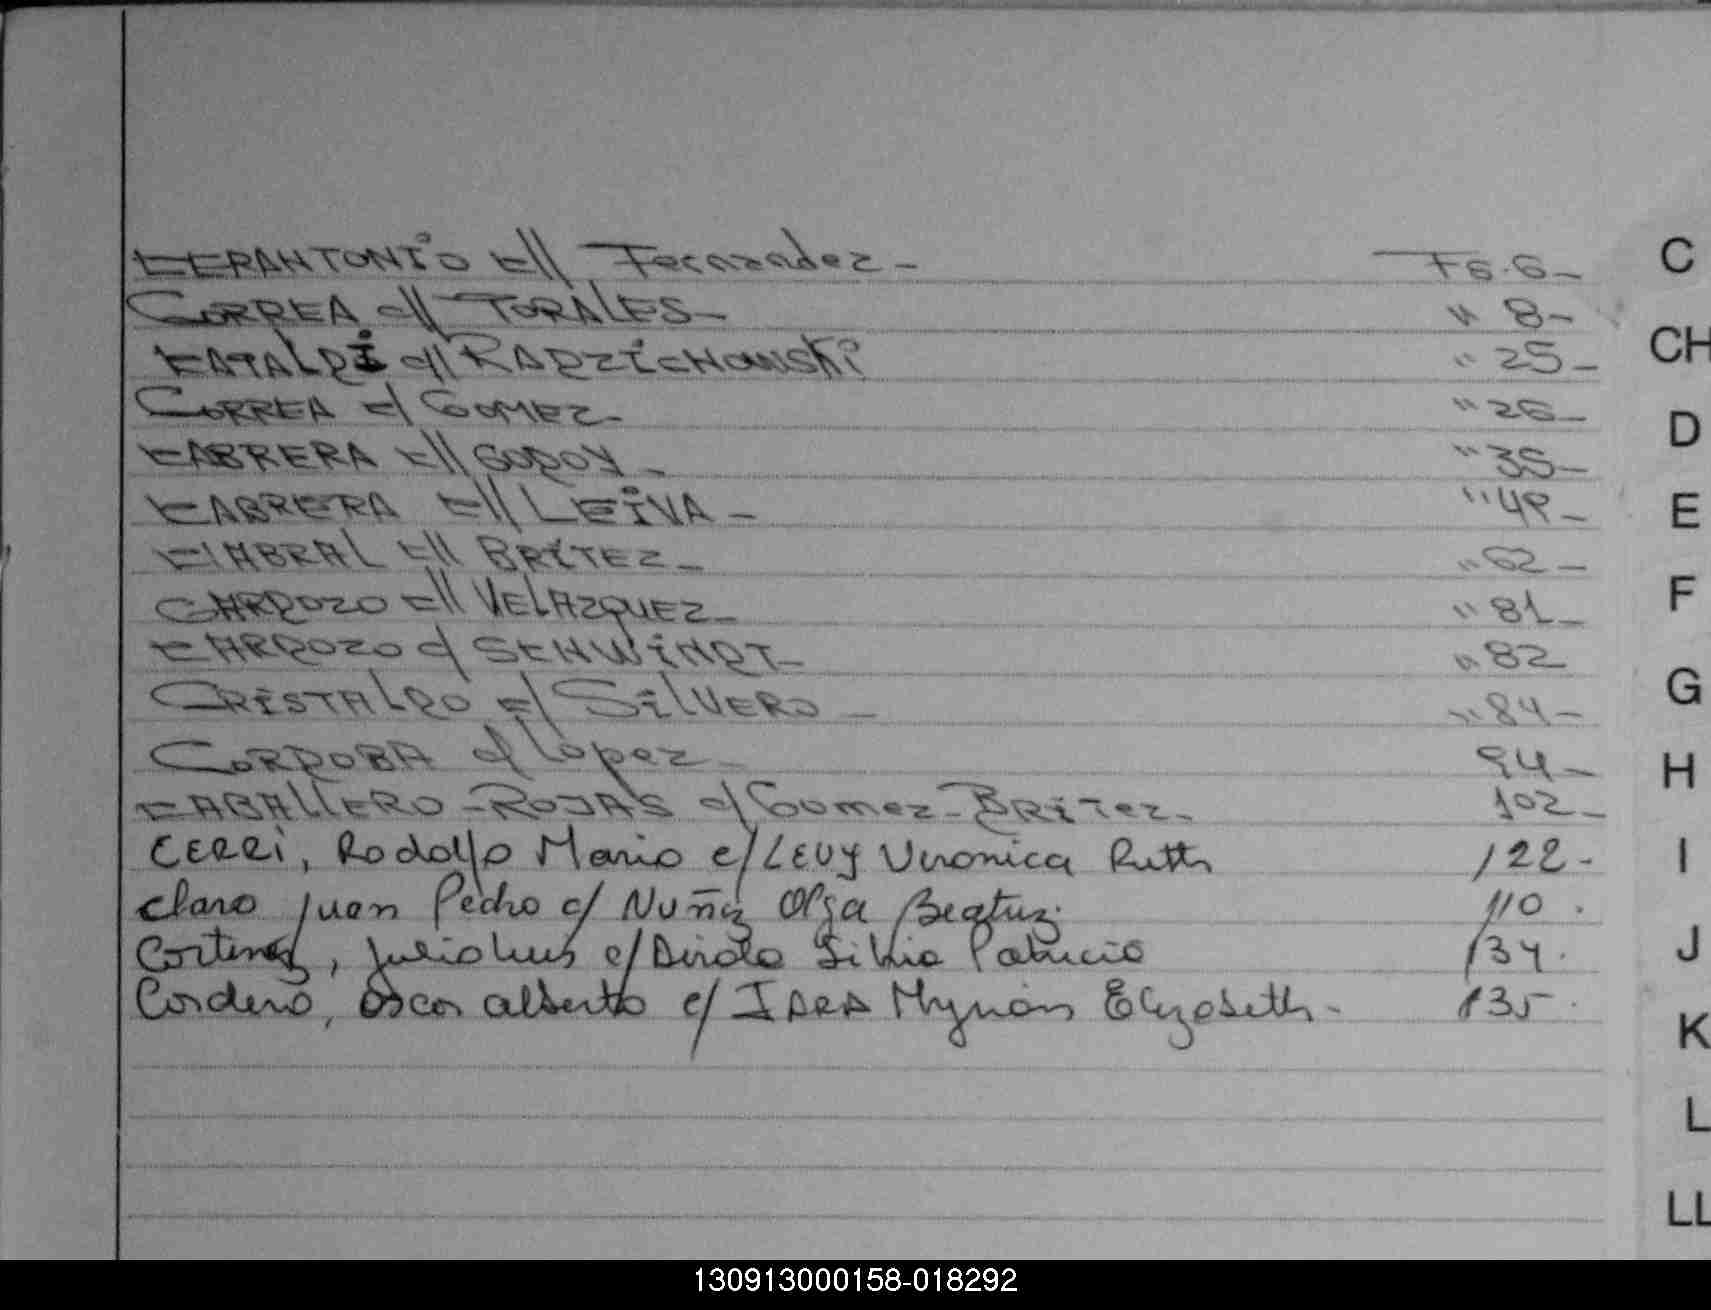 CERANTONIO c// Fernandez - Fs. 6 -
CORREA c// TORALES - " 8 -
CATALDI c// RADZICHOWSKI " 25 -
CORREA c/ GOMEZ - " 26 -
CABRERA c// GODOY - " 35 -
CABRERA c// LEIVA - " 49 -
CABRAL c// BRITEZ - " 62 -
CARDOZO c// VELAZQUEZ - " 81 -
CARDOZO c/ SCHWINDT - " 82
CRISTALDO c/ SILVERO - " 84 -
CORDOBA c/ Lopez - 94 -
CABALLERO - ROJAS c/ Gomez - BRITEZ - 102 -
CERRI, Rodolfo Mario c/ LEVY Veronica Ruth 122 -
Claro Juan Pedro c/ Nuñez Olga Beatriz. 110 .
Cortinez, Julio Luis c/ Silvia Patricia 134 .
Cordero, Oscar Alberto c/ Myrian Elizabeth - 135 .
C
CH
D
E
F
G
H
I
J
K
L
LL
130913000158-018292